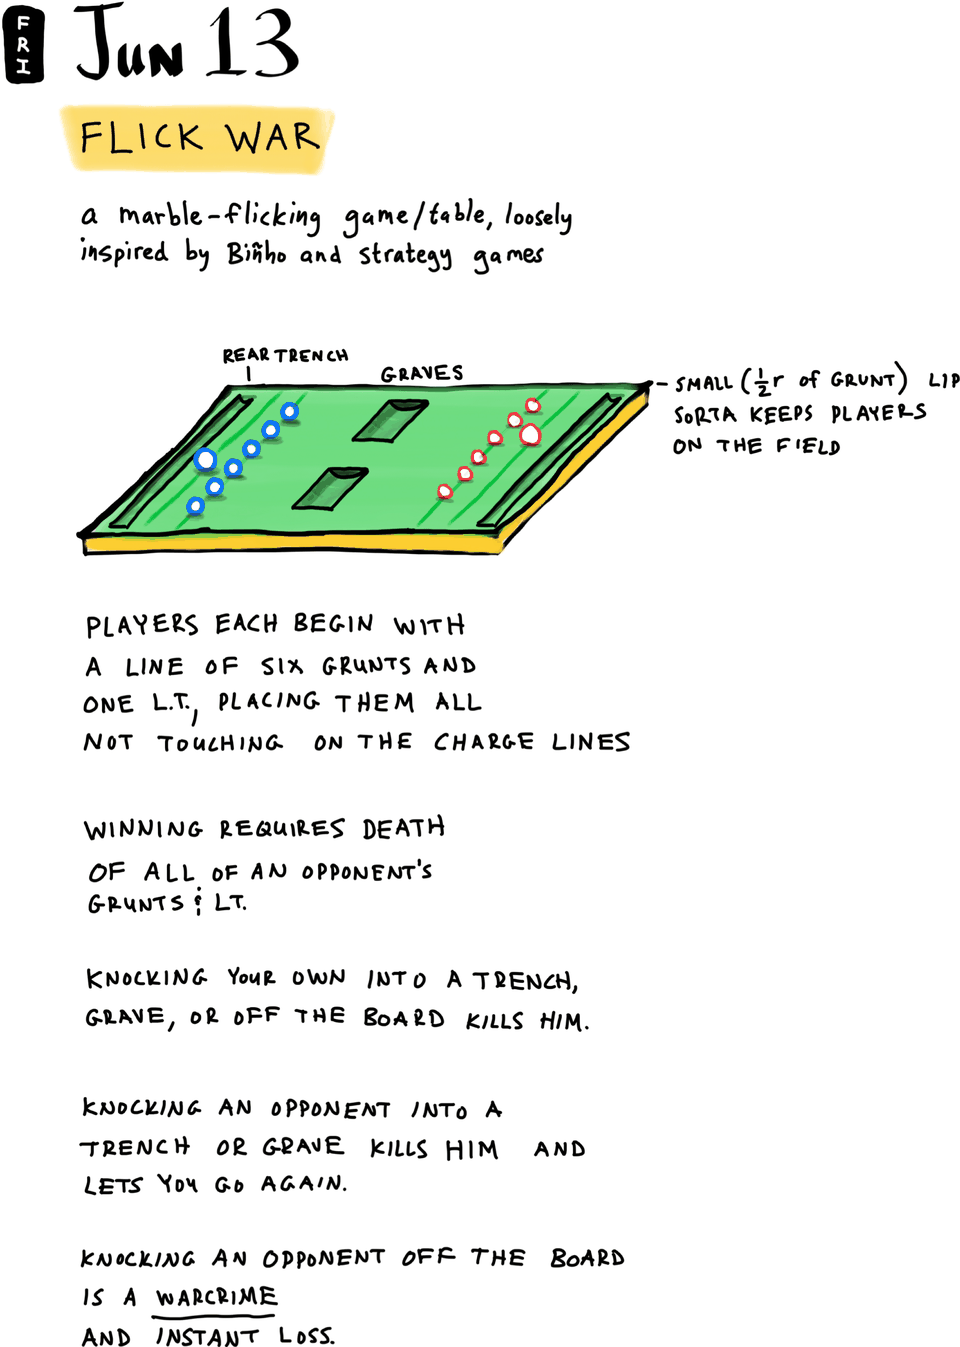 FRI
Jun 13
FLICK WAR
a marble-flicking game/table, loosely
inspired by Biñho and strategy games
REAR TRENCH
GRAVES
SMALL (½r of GRUNT) LIP
SORTA KEEPS PLAYERS
ON THE FIELD
PLAYERS EACH BEGIN WITH
A LINE OF SIX GRUNTS AND
ONE L.T., PLACING THEM ALL
NOT TOUCHING ON THE CHARGE LINES
WINNING REQUIRES DEATH
OF ALL OF AN OPPONENT'S
GRUNTS & LT.
KNOCKING YOUR OWN INTO A TRENCH,
GRAVE, OR OFF THE BOARD KILLS HIM.
KNOCKING AN OPPONENT INTO A
TRENCH OR GRAVE KILLS HIM AND
LETS YOU GO AGAIN.
KNOCKING AN OPPONENT OFF THE BOARD
IS A WARCRIME
AND INSTANT LOSS.